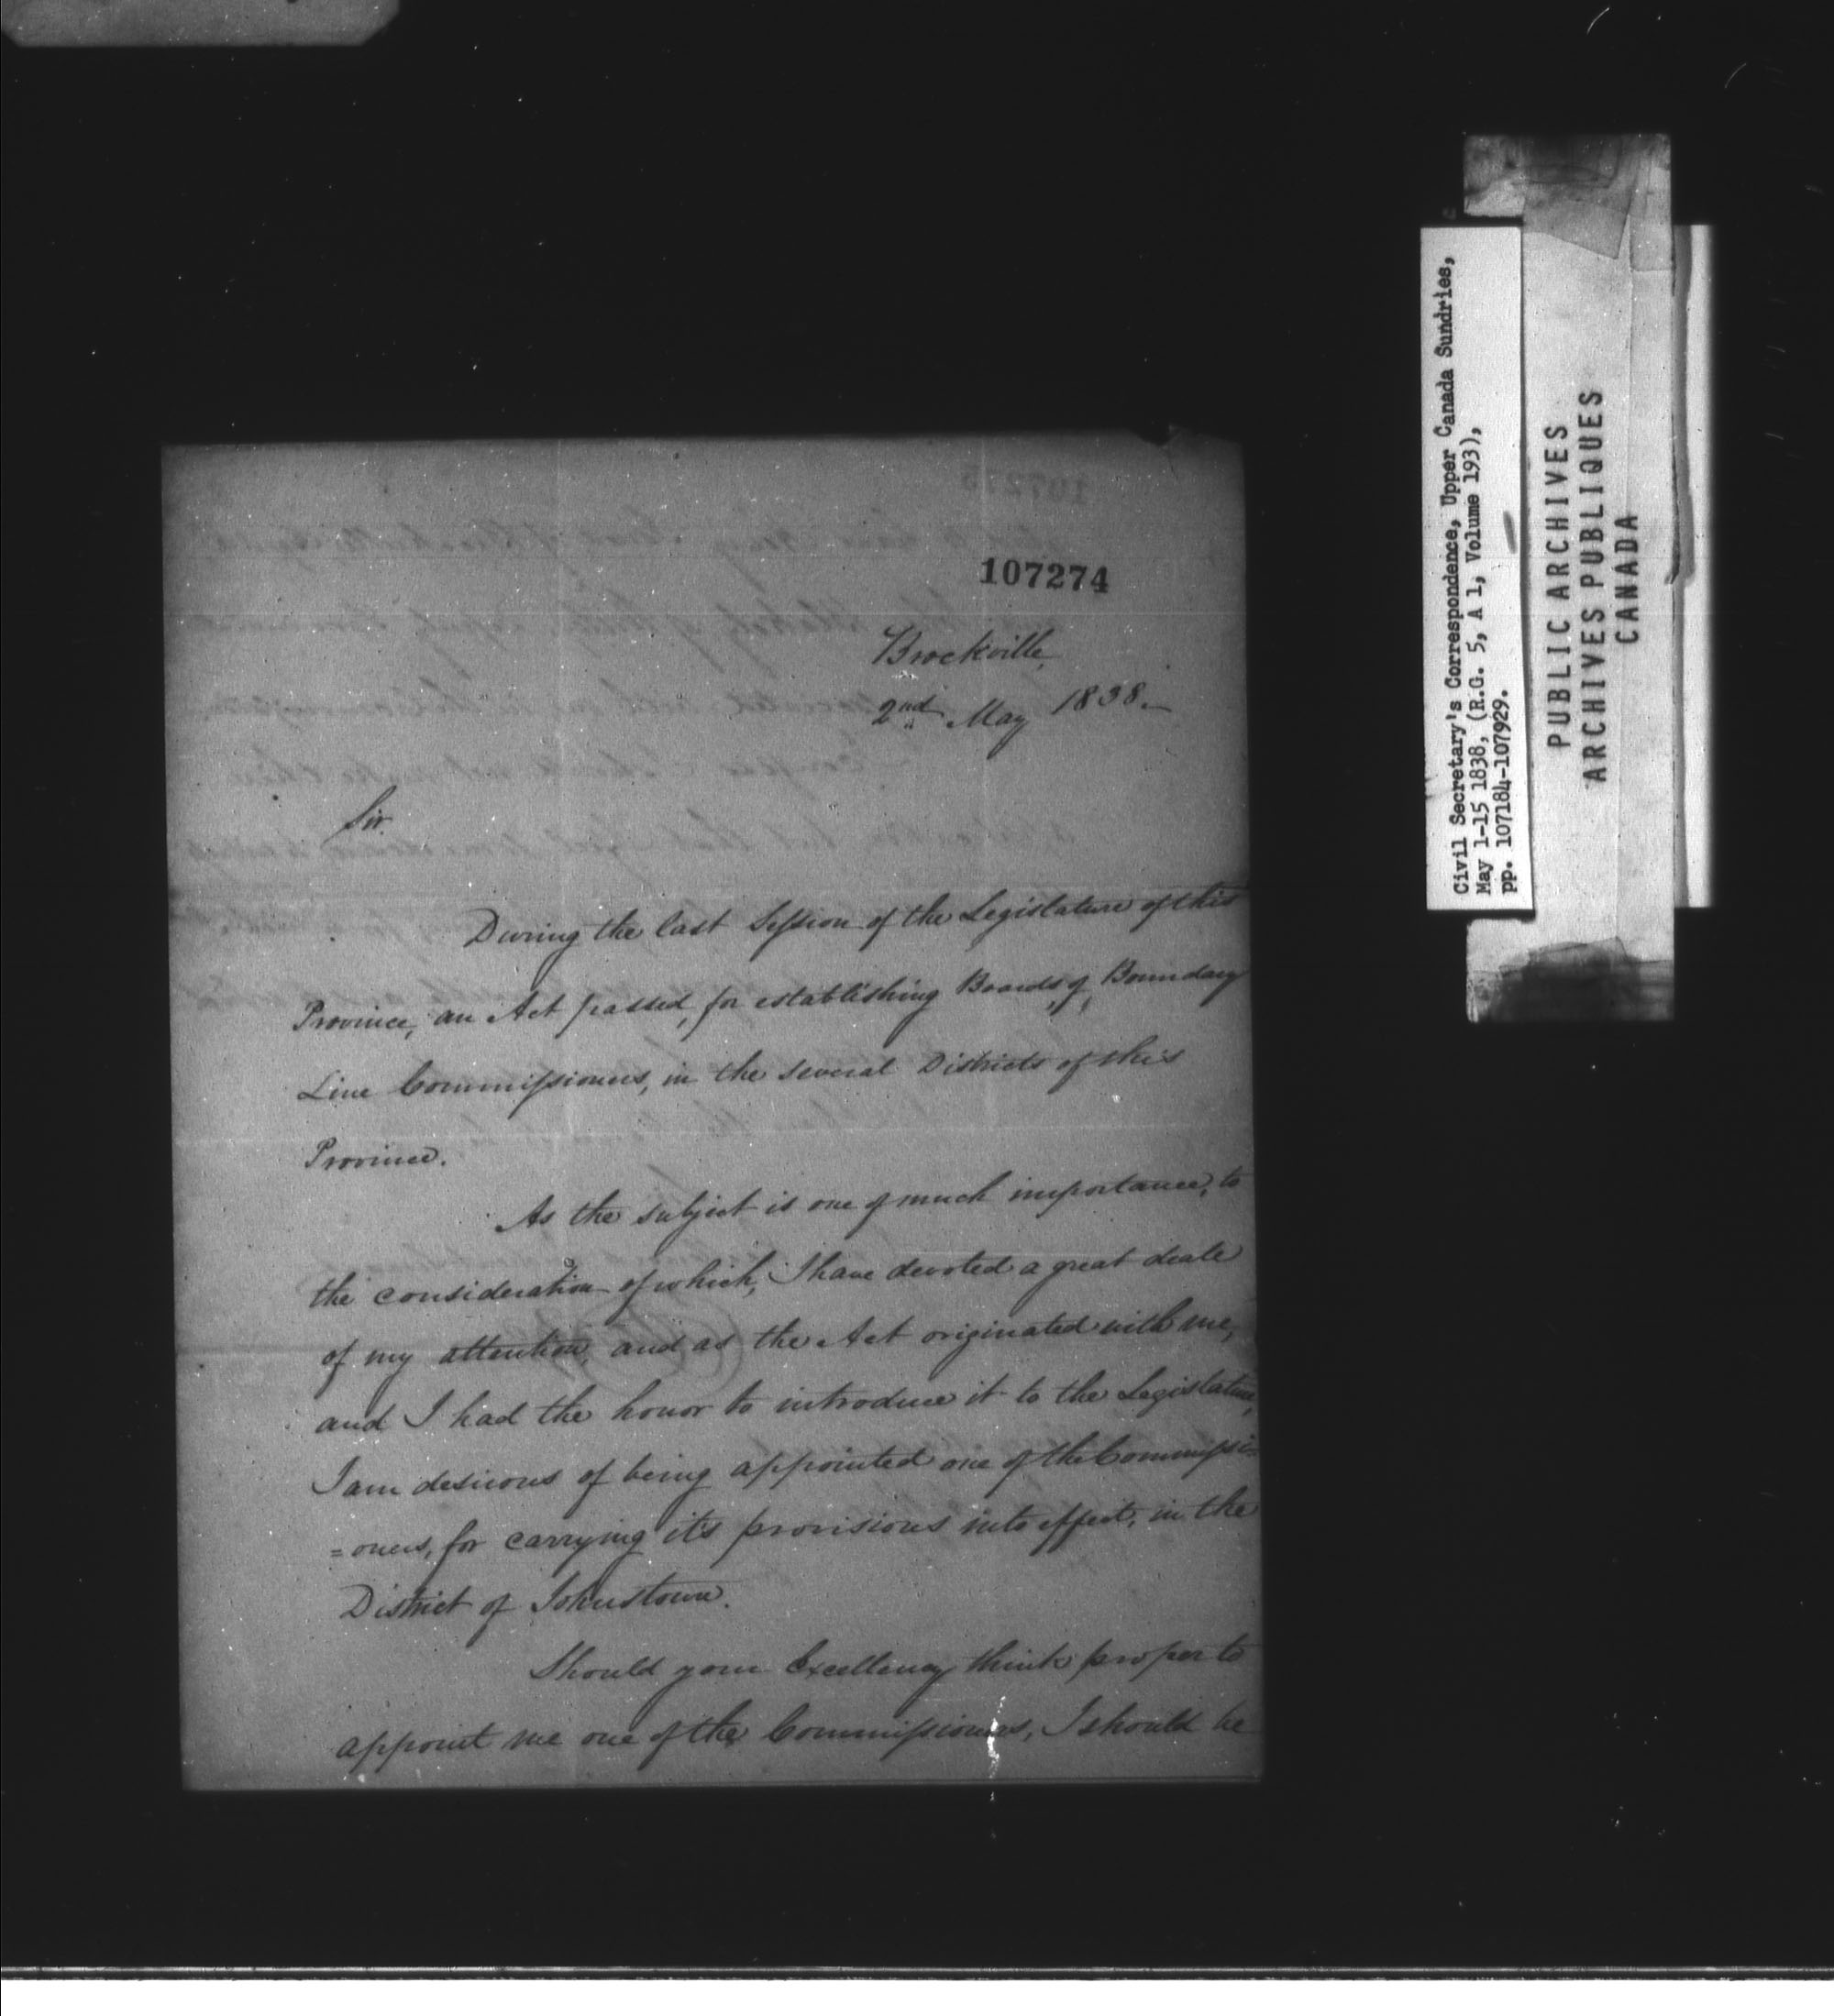 107274
Brockville,
2nd May 1838.
Sir
During the last Session of the Legislature of this
Province, an Act passed, for establishing Boards of Boundary
Line Commissioners, in the several Districts of this
Province.
As the subject is one of much importance, to
the consideration of which, I have devoted a great deale
of my attention, and as the Act originated with me,
and I had the honor to introduce it to the Legislature,
I am desirous of being appointed one of the Commissi=
=oners, for carrying it's provisions into effect, in the
District of Johnstown.
Should your Excellency think proper to
appoint me one of the Commissioners, I should be
Civil Secretary's Correspondence, Upper Canada Sundries,
May 1-15 1838, (R.G. 5, A 1, Volume 193),
pp. 107184-107929.
PUBLIC ARCHIVES
ARCHIVES PUBLIQUES
CANADA